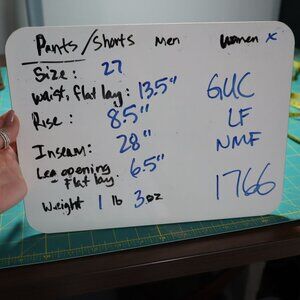 Pants/Shorts Men Women x
Size: 27
Waist, flat lay: 13.5" GUC
Rise: 8.5" LF
Inseam: 28" NMF
Leg opening - flat lay: 6.5"
Weight 1 lb 3 oz 1766